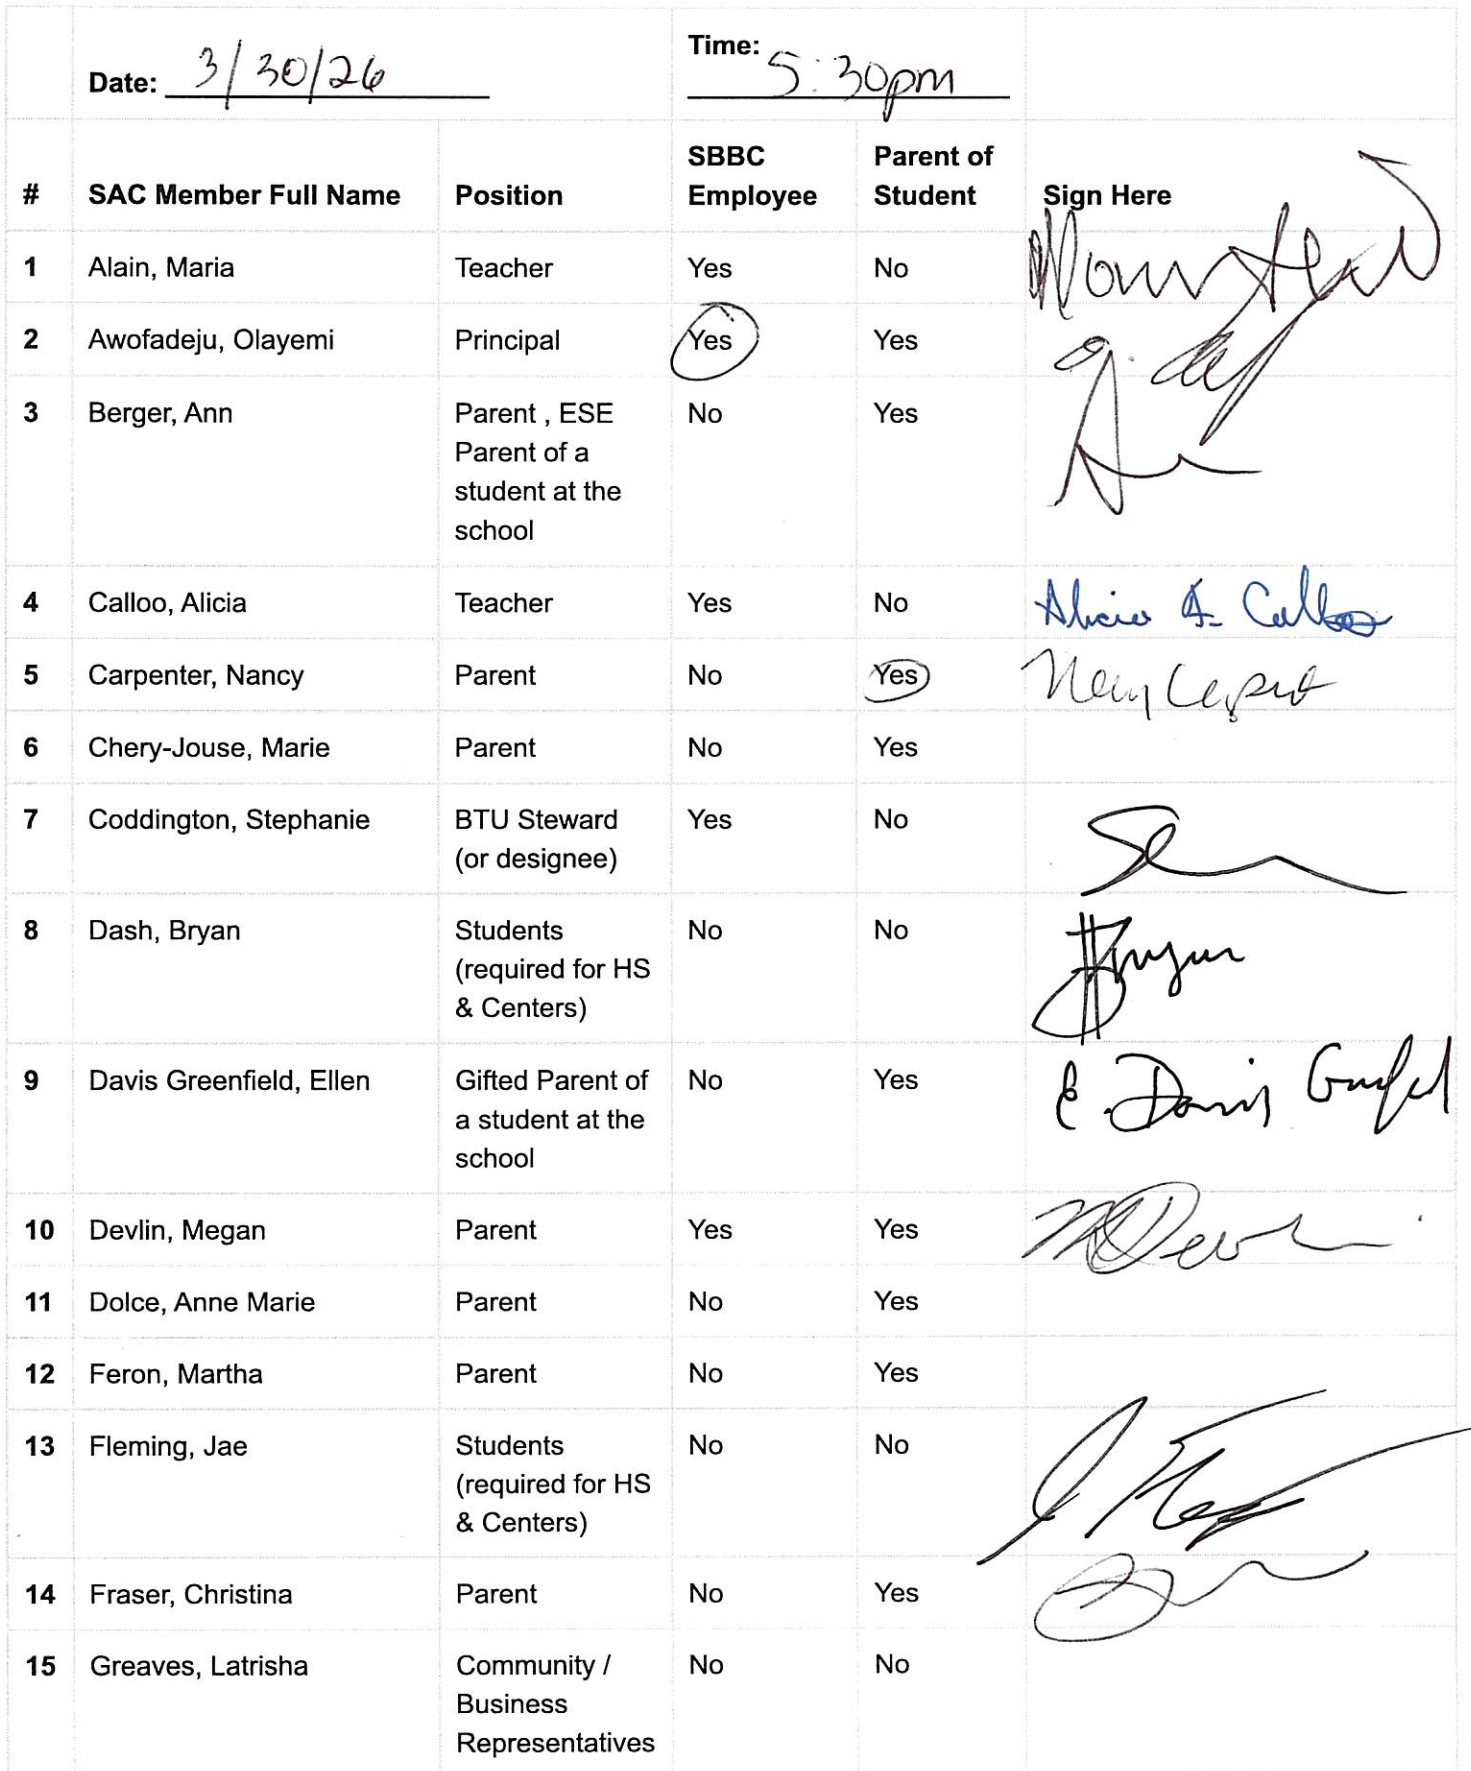 Date: 3/30/26 Time: 5:30pm
# SAC Member Full Name Position SBBC Employee Parent of Student Sign Here
1 Alain, Maria Teacher Yes No
2 Awofadeju, Olayemi Principal Yes Yes
3 Berger, Ann Parent , ESE No Yes
Parent of a
student at the
school
4 Calloo, Alicia Teacher Yes No Alicia A. Calloo
5 Carpenter, Nancy Parent No Yes
6 Chery-Jouse, Marie Parent No Yes
7 Coddington, Stephanie BTU Steward Yes No
(or designee)
8 Dash, Bryan Students No No Bryan
(required for HS
& Centers)
9 Davis Greenfield, Ellen Gifted Parent of No Yes E. Davis
a student at the
school
10 Devlin, Megan Parent Yes Yes MDevlin
11 Dolce, Anne Marie Parent No Yes
12 Feron, Martha Parent No Yes
13 Fleming, Jae Students No No
(required for HS
& Centers)
14 Fraser, Christina Parent No Yes
15 Greaves, Latrisha Community / No No
Business
Representatives